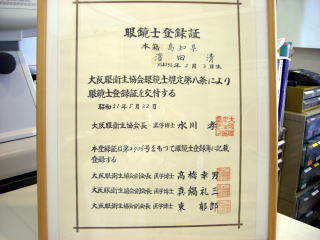 眼鏡士登録証
本籍 高知県
濱田 清
大阪眼衛生協会眼鏡士規定第八条により
眼鏡士登録証を交付する
昭和31年5月22日
大阪眼衛生協会長 医学博士 水川 孝
本登録証は第 号をもつて眼鏡士登録簿に記載
登録する
大阪眼衛生協会副会長 医学博士 高橋幸男
大阪眼衛生協会副会長 医学博士 真鍋礼三
大阪眼衛生協会副会長 医学博士 東 郁郎